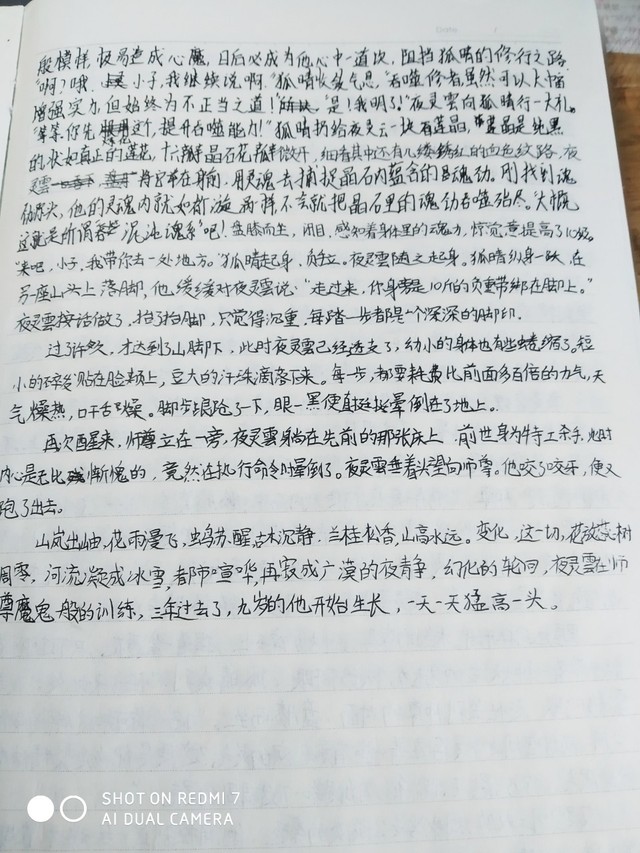 般模样 极易造成心魔,日后必成为他心中一道坎,阻挡狐晴的修行之路.
"啊?哦. 小子,我继续说啊."狐晴收敛气息."吞噬修者虽然可以大幅
增强实力,但始终为不正当之道!" "是!我明了!"夜灵云向狐晴行一大礼。
"等等你先 这个,提升吞噬能力!"狐晴扔给夜灵云一块石莲晶,莲晶是纯黑
的,状如真正的莲花,十六瓣晶石花瓣 ,细看其中还有几缕 红的血色纹路,夜
灵云 在身前.用灵魂去捕捉晶石内蕴含的魂动。刚找到魂
动源头,他的灵魂内就如析漩涡一样不会就把晶石里的魂动吞噬殆尽。"大概
这就是所谓 混沌魂系吧!盘膝而坐,闭目,感知着身体里的魂力,惊觉竟提高了10级.
"来吧,小子,我带你去一处地方。"狐晴起身,负立。夜灵云随之起身。狐晴纵身一跃,在
另一座山头上落脚,他缓缓对夜灵云说:"走过来,你身带是10斤的负重带绑在脚上。"
夜灵云按话做了,抬了抬脚,只觉得沉重,每踏一步都是个深深的脚印.
过了许久,才达到了山脚下,此时夜灵云已经透支了,幼小的身体也有些蜷缩了。短
小的碎发贴在脸颊上,豆大的汗珠滴落下来。每一步,都要耗费比前面多百倍的力气,天
气燥热,口干舌燥。脚步踉跄了一下,眼一黑便直挺挺晕倒在了地上。
再次醒来,师尊立在一旁,夜灵云躺在先前的那张床上.前世身为特工杀手,此时
内心是无比惭愧的,竟然在执行命令时晕倒了。夜灵云垂着头望向师尊。他咬了咬牙,便又
跑了出去。
山岚出岫,花雨漫飞,蚰苏醒,古木沉静.三桂松香,山高水远。变化,这一切,花放茶树
凋零,河流凝成冰雪,都市喧哗,再寂成广漠的夜静,幻化的轮回,夜灵云在师
尊魔鬼般的训练,三年过去了,九岁的他开始生长,一天一天猛高一头。
SHOT ON REDMI 7
AI DUAL CAMERA